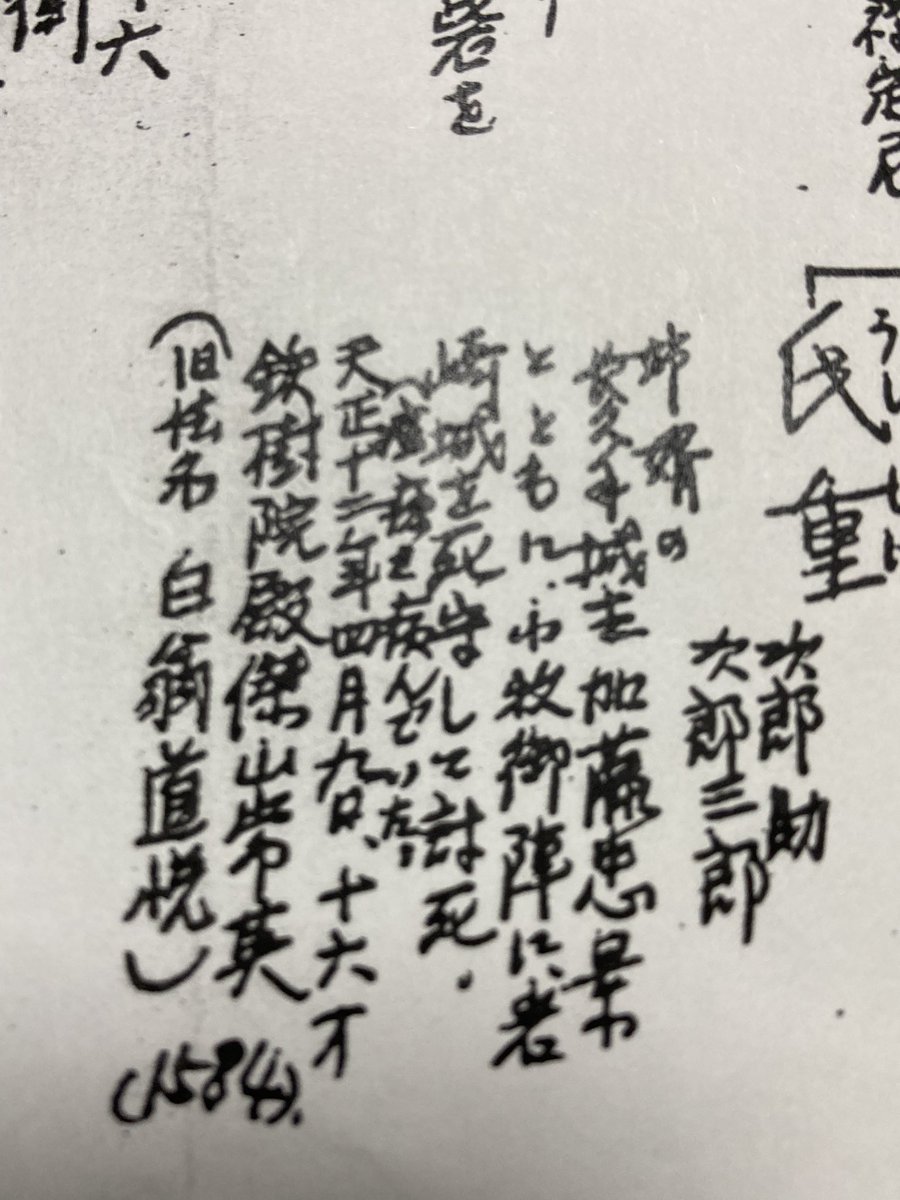 氏重
次郎助
次郎三郎
姉婿の
長久手城主加藤忠景
とともに、小牧御陣に岩
崎城を死守して討死.
(疱瘡を病んでいた)
天正十二年四月九日、十六才
鉄樹院殿傑山常英
(旧法名 白翁道悦)
(1584).
砦を
十六